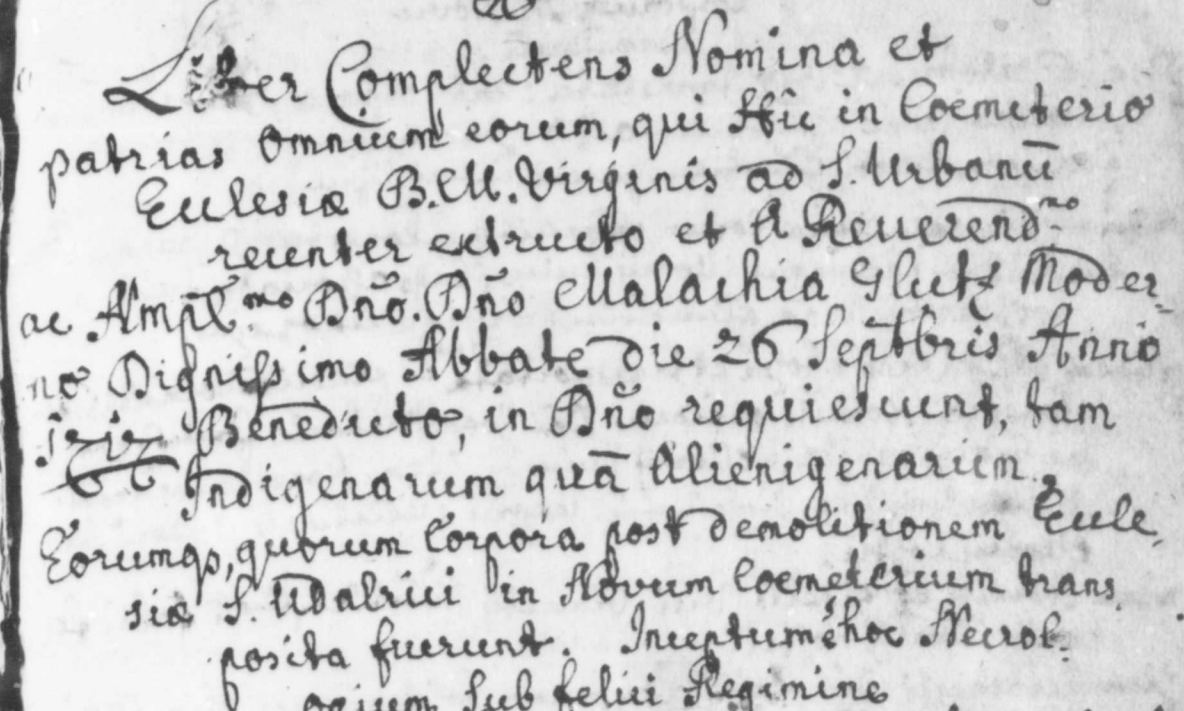 Liber Complectens Nomina et
patrias omnium eorum, qui hîc in Coemeterio
Ecclesiæ B.M. Virginis ad S. Urbanū
recenter extructo et A Reverend.mo
ac Ampl.mo Dn̄o. Dn̄o Malachia Glutz Moder-
no Dignissimo Abbate die 26 Septbris Anno
1717 Benedicto, in Dn̄o requiescunt, tam
Indigenarum quā Alienigenarum.
Eorumqs, quorum Corpora post demolitionem Eccle-
siæ S. Udalrici in Novum Coemeterium trans
posita fuerunt. Inceptum é hoc Necrol-
ogium sub felici Regimine